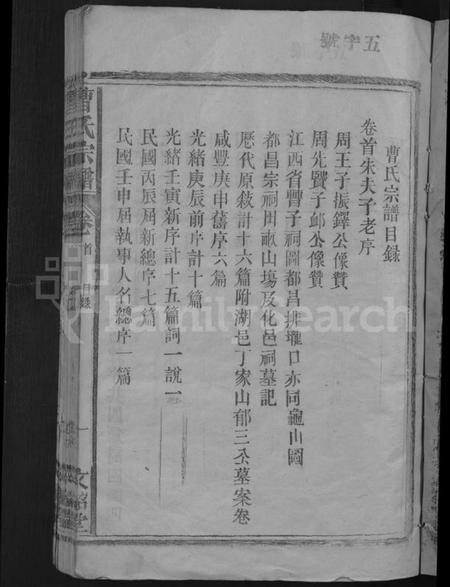 五字號
曹氏宗譜目錄
卷首朱夫子老序
周王子振鐸公像贊
周先賢子邺公像贊
江西省曹子祠圖都昌排壠口亦同龜山圖
都昌宗祠田畝山塲及化邑祠墓記
歷代原敘計十六篇附湖邑丁家山郁三公墓案卷
咸豐庚申舊序六篇
光緒庚辰前序計十篇
光緒壬寅新序計十五篇詞一說一
民國丙辰屆新總序七篇
民國壬申屆執事人名總序一篇
曹氏宗譜
卷首
目錄
一
文銘堂
FamilySearch